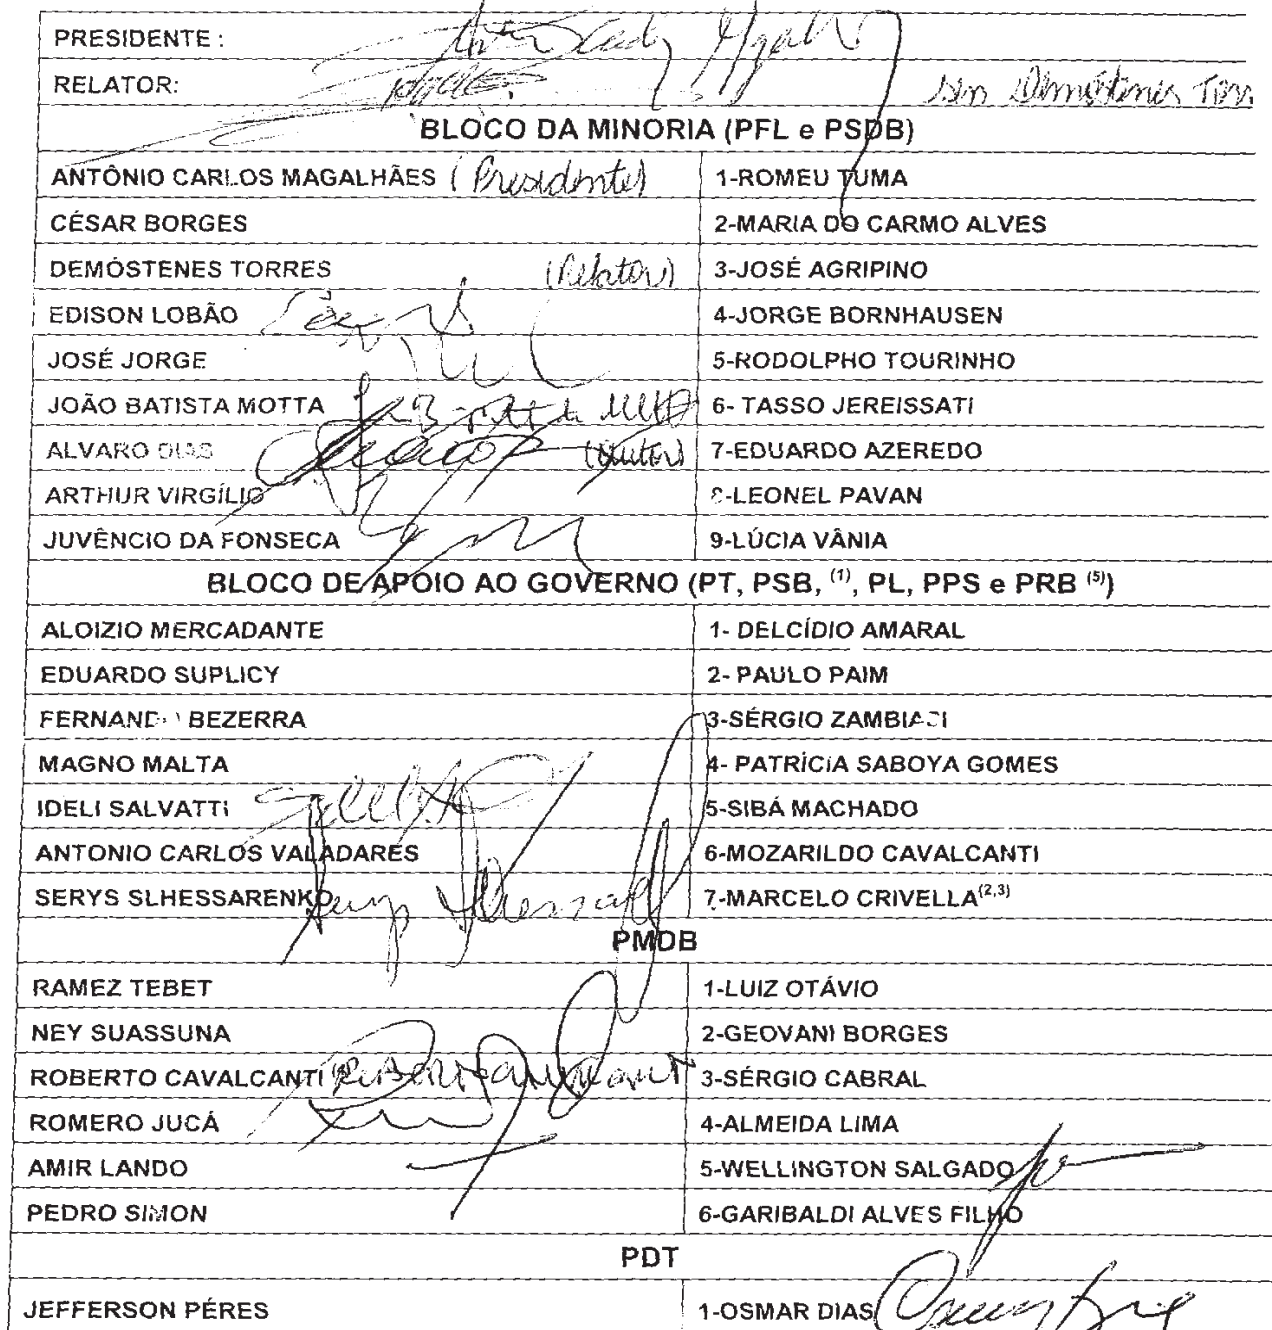 PRESIDENTE :
RELATOR: Sen Demóstenes Torr
BLOCO DA MINORIA (PFL e PSDB)
ANTÔNIO CARLOS MAGALHÃES (Presidente) 1-ROMEU TUMA
CÉSAR BORGES 2-MARIA DO CARMO ALVES
DEMÓSTENES TORRES (Relator) 3-JOSÉ AGRIPINO
EDISON LOBÃO 4-JORGE BORNHAUSEN
JOSÉ JORGE 5-RODOLPHO TOURINHO
JOÃO BATISTA MOTTA 6- TASSO JEREISSATI
ALVARO DIAS (Autor) 7-EDUARDO AZEREDO
ARTHUR VIRGÍLIO 8-LEONEL PAVAN
JUVÊNCIO DA FONSECA 9-LÚCIA VÂNIA
BLOCO DE APOIO AO GOVERNO (PT, PSB, (1), PL, PPS e PRB (5))
ALOIZIO MERCADANTE 1- DELCÍDIO AMARAL
EDUARDO SUPLICY 2- PAULO PAIM
FERNANDO BEZERRA 3-SÉRGIO ZAMBIASI
MAGNO MALTA 4- PATRÍCIA SABOYA GOMES
IDELI SALVATTI 5-SIBÁ MACHADO
ANTONIO CARLOS VALADARES 6-MOZARILDO CAVALCANTI
SERYS SLHESSARENKO 7-MARCELO CRIVELLA(2,3)
PMDB
RAMEZ TEBET 1-LUIZ OTÁVIO
NEY SUASSUNA 2-GEOVANI BORGES
ROBERTO CAVALCANTI 3-SÉRGIO CABRAL
ROMERO JUCÁ 4-ALMEIDA LIMA
AMIR LANDO 5-WELLINGTON SALGADO
PEDRO SIMON 6-GARIBALDI ALVES FILHO
PDT
JEFFERSON PÉRES 1-OSMAR DIAS